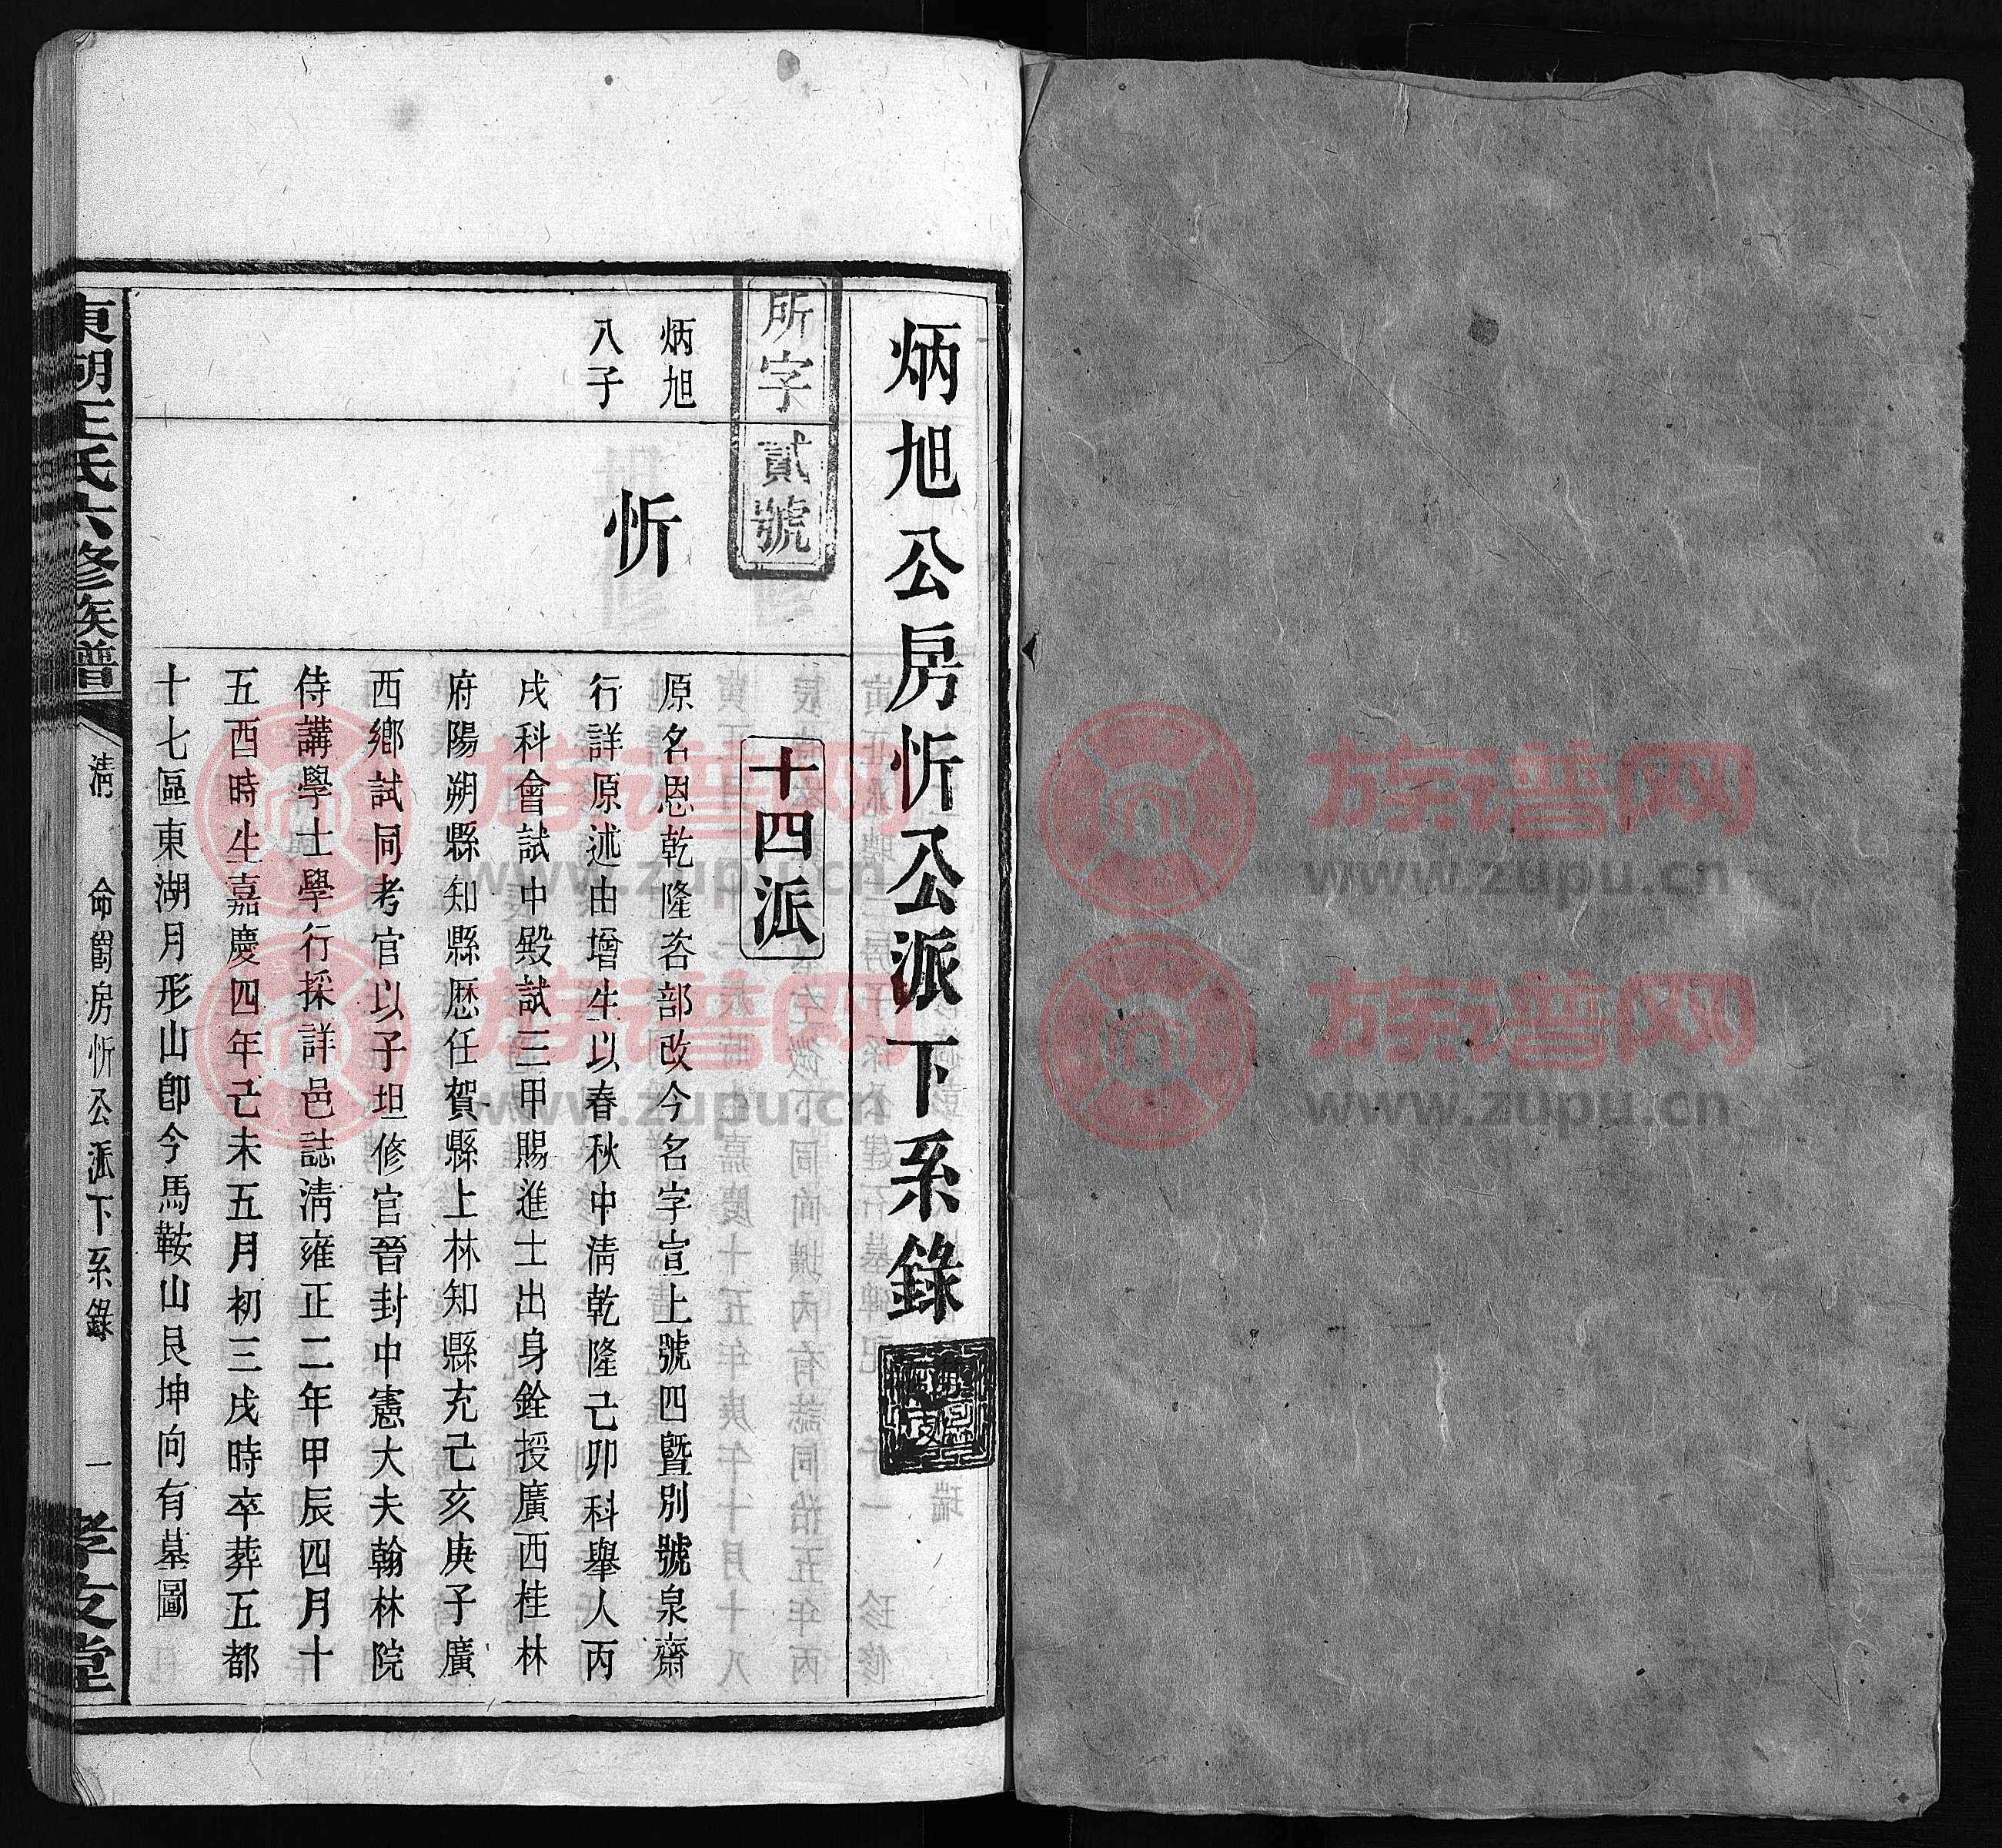 炳旭公房忻公派下系錄
所字貳號
十四派
炳旭
八子
忻
原名恩乾隆咨部改今名字宣上號四暨別號泉齋
行詳原述由增生以春秋中淸乾隆己卯科舉人丙
戌科會試中殿試三甲賜進士出身銓授廣西桂林
府陽朔縣知縣歷任賀縣上林知縣充己亥庚子廣
西鄉試同考官以子坦修官晉封中憲大夫翰林院
侍講學士學行採詳邑誌淸雍正二年甲辰四月十
五酉時生嘉慶四年己未五月初三戌時卒葬五都
十七區東湖月形山卽今馬鞍山艮坤向有墓圖
東湖王氏六修族譜
淸
命爵房忻公派下系錄
一
孝友堂
族谱网
www.zupu.cn
族谱网
www.zupu.cn
族谱网
www.zupu.cn
族谱网
www.zupu.cn